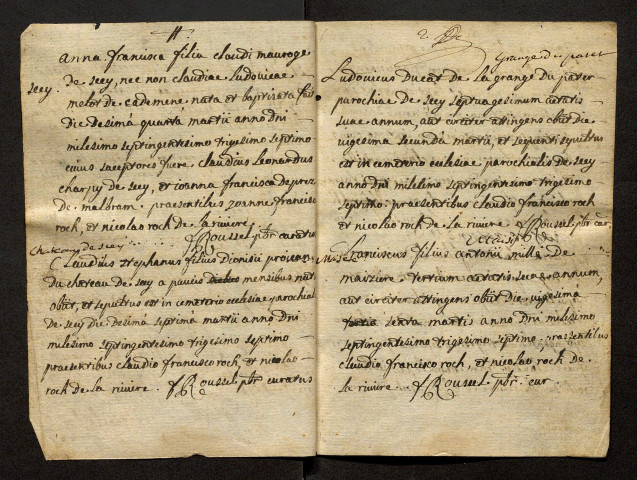 anna francisca filia claudi mauroge
scey. de scey, nec non claudiae Ludovicae
melot de cademene nata et baptisata fuit
die desima quarta martii anno Dni
milesimo septingentesimo trigesimo septimo
cuius susceptores fuere claudius Leonardus
charpy de scey, et ioanna francisca deprez
de malbram. praesentibus Joanne francisco
roch, et nicolao roch de la riviere
Roussel pbr curatus
chateau de scey
Claudius stephanus filius dionisii
du chateau de scey a paucis mensibus natus
obiit, et sepultus est in cemeterio ecclesiae parochialis
de scey die desima septima martii anno Dni
milesimo septingentesimo trigesimo septimo
praesentibus claudio francisco roch et nicolao
roch de la riviere. Roussel pbr curatus
2
grange du pater
Ludovicus Ducat de la grange du pater
parochiae de scey septuagesimum aetatis
suae annum, aut circiter attingens obiit die
vigesima secunda martii, et sequenti sepultus
est in cemeterio ecclesiae parochialis de scey
anno Dni milesimo septingentesimo trigesimo
septimo. praesentibus claudio francisco roch
et nicolao roch de la riviere Roussel pbr cur
franciscus filius antonii mille de
maiziere tertium aetatis suae annum,
aut circiter attingens obiit die vigesima
sexta martis anno Dni milesimo
septingentesimo trigesimo septimo. praesentibus
claudio francisco roch, et nicolao roch de
la riviere. Roussel pbr cur.